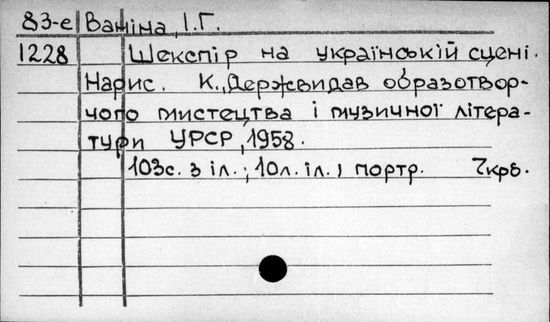 83-е Ваніна, І.Г.
1228 Шекспір на українській сцені.
Нарис. К., Держвидав образотвор-
чого мистецтва і музичної літера-
тури УРСР, 1958.
103с. з іл.; 10л. іл., портр. 7крб.